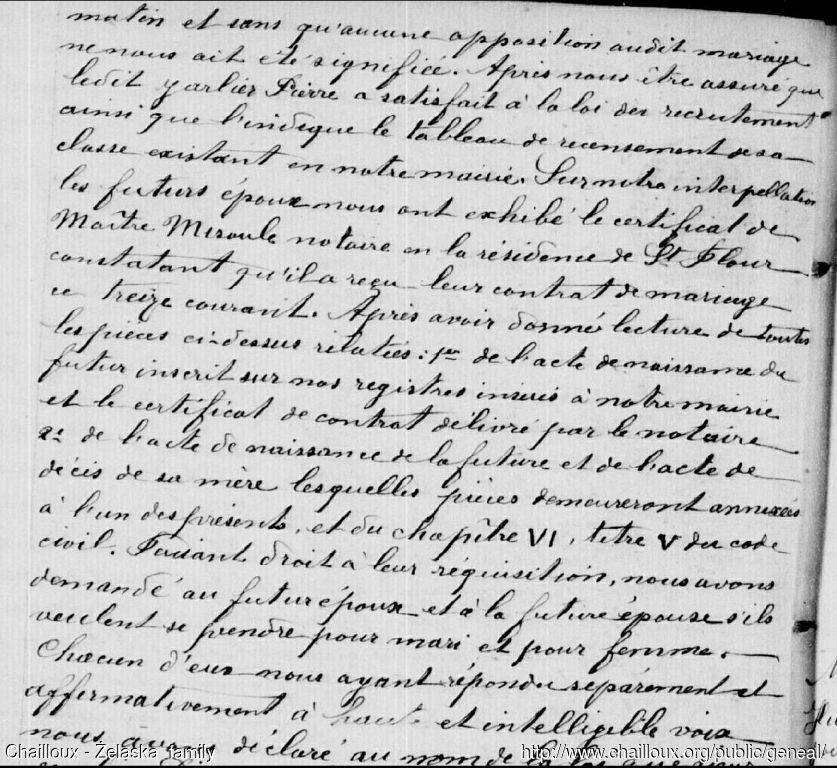 matin et sans qu'aucune opposition audit mariage
ne nous ait été signifiée. Après nous être assuré que
ledit Pierre a satisfait à la loi du recrutement
ainsi que l'indique le tableau de recensement de sa
classe existant en notre mairie. Sur notre interpellation
les futurs époux nous ont exhibé le certificat de
Maître notaire en la résidence de St Flour
constatant qu'il a reçu leur contrat de mariage
le treize courant. Après avoir donné lecture de toutes
les pièces ci-dessus relatées : 1er de l'acte de naissance du
futur inscrit sur nos registres à notre mairie
et le certificat de contrat délivré par le notaire
2º de l'acte de naissance de la future et de l'acte de
décès de sa mère lesquelles pièces demeureront annexées
à l'un des présents, et du chapître VI, titre V du code
civil. Faisant droit à leur réquisition, nous avons
demandé au futur époux et à la future épouse s'ils
veulent se prendre pour mari et pour femme.
Chacun d'eux nous ayant répondu séparément et
affirmativement à haute et intelligible voix
nous avons déclaré au nom de la loi que
Chailloux - Żelaska family
http://www.chailloux.org/public/geneal/